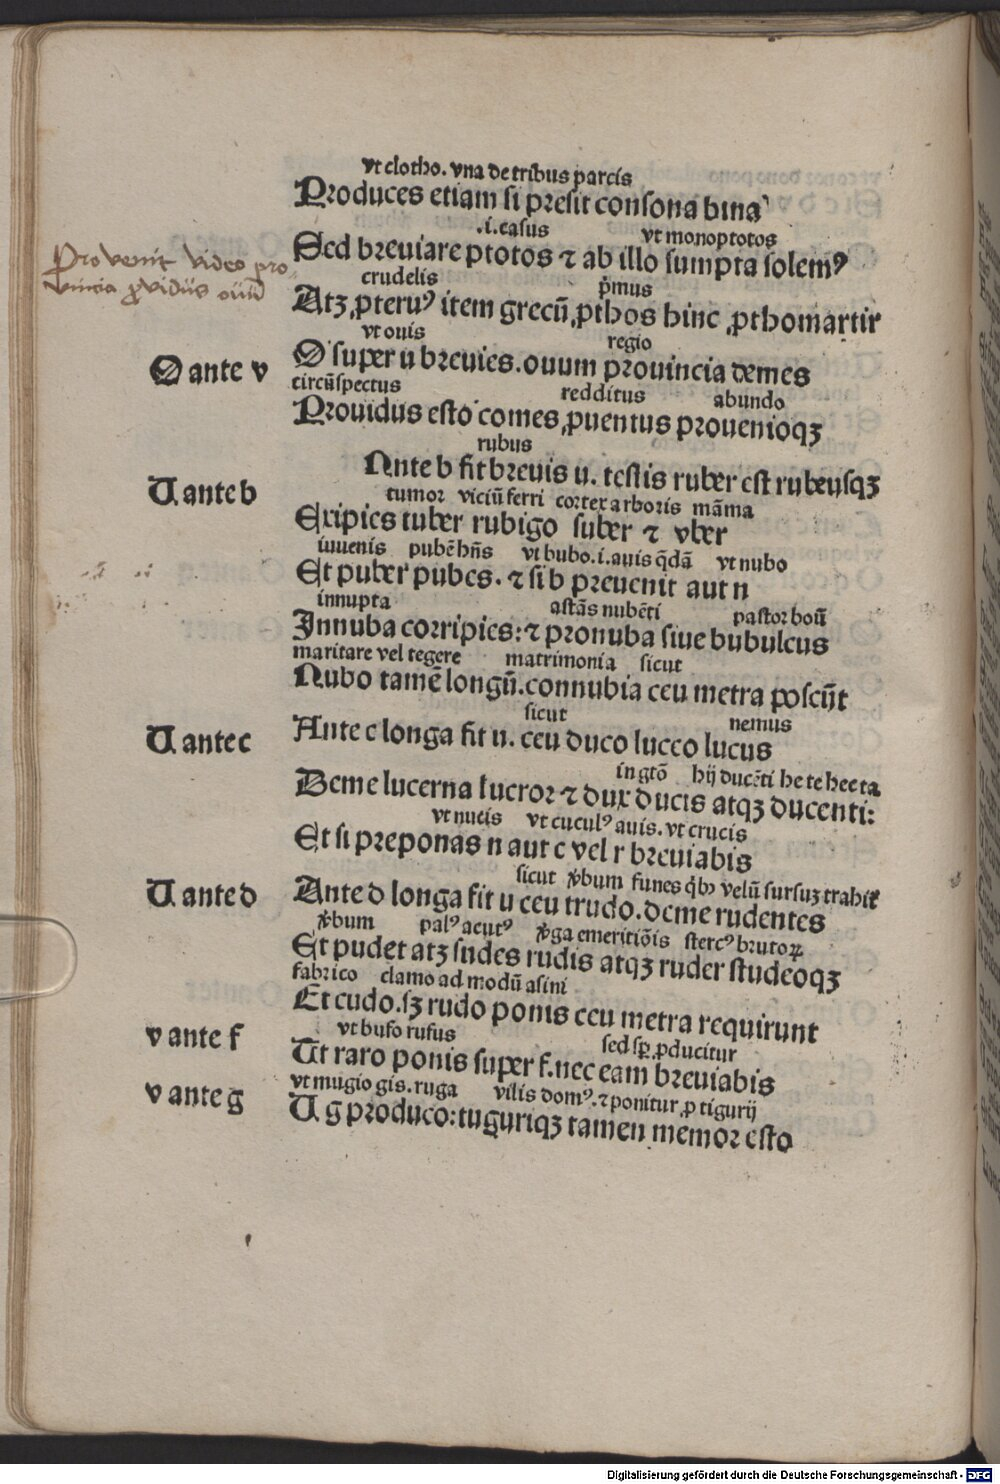 vt clotho. vna de tribus parcis
Produces etiam si presit consona bina
.i. casus vt monoptotos
Sed breuiare ptotos ⁊ ab illo sumpta solemꝰ
crudelis p̄mus
Atꝫ ꝓteruꝰ item grecū ꝓthos hinc ꝓthomartir
vt ouis regio
O ante v
O super u breuies. ouum prouincia demes
circūspectus redditus abundo
Prouidus esto comes ꝓuentus prouenioqꝫ
rubus
U ante b
Ante b fit breuis u. testis ruber est rubeusqꝫ
tumor viciū ferri cortex arboris mām̄a
Excipies tuber rubigo suber ⁊ vber
iuuenis pubē hn̄s vt bubo .i. auis q̄dā vt nubo
Et puber pubes. ⁊ si b preuenit aut n
innupta astās nubēti pastor boū
Innuba corripies: ⁊ pronuba siue bubulcus
maritare vel tegere matrimonia sicut
Nubo tamē longū. connubia ceu metra poscūt
sicut nemus
U ante c
Ante c longa fit u. ceu duco luceo lucus
in gtō hij ducēti he te hee ta
Deme lucerna lucror ⁊ dux ducis atqꝫ ducenti:
vt nucis vt cuculꝰ auis. vt crucis
Et si preponas n aut c vel r breuiabis
sicut v̄bum funes q̄bꝫ velū sursuꝫ trahit̄
U ante d
Ante d longa fit u ceu trudo. deme rudentes
v̄bum palꝰ acutꝰ v̄ga emeritiōis stercꝰ brutoꝝ
Et pudet atꝫ sudes rudis atqꝫ ruder studeoqꝫ
fabrico clamo ad modū asini
Et cudo. sꝫ rudo ponis ceu metra requirunt
vt bufo rufus sed sꝑ ꝓducitur
v ante f
Ut raro ponis super f. nec eam breuiabis
vt mugio gis. ruga vilis domꝰ. ⁊ ponitur ꝓ tigurij
v ante g
U g produco: tuguriqꝫ tamen memor esto
Provenit video pro-
vincia ꝓvidus ouū
Digitalisierung gefördert durch die Deutsche Forschungsgemeinschaft - DFG